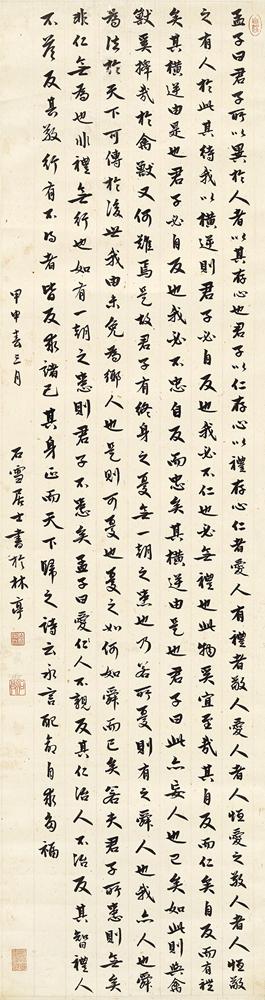 孟子曰君子所以異於人者以其存心也君子以仁存心以禮存心仁者愛人有禮者敬人愛人者人恒愛之敬人者人恒敬
之有人於此其待我以橫逆則君子必自反也我必不仁也必無禮也此物奚宜至哉其自反而仁矣自反而有禮
矣其橫逆由是也君子必自反也我必不忠自反而忠矣其橫逆由是也君子曰此亦妄人也已矣如此則與禽
獸奚擇哉於禽獸又何難焉是故君子有終身之憂無一朝之患也乃若所憂則有之舜人也我亦人也舜
為法於天下可傳於後世我由未免為鄉人也是則可憂也憂之如何如舜而已矣若夫君子所患則無矣
非仁無為也非禮無行也如有一朝之患則君子不患矣孟子曰愛人不親反其仁治人不治反其智禮人
不答反其敬行有不得者皆反求諸己其身正而天下歸之詩云永言配命自求多福
甲申春三月 石雪居士書於林亭